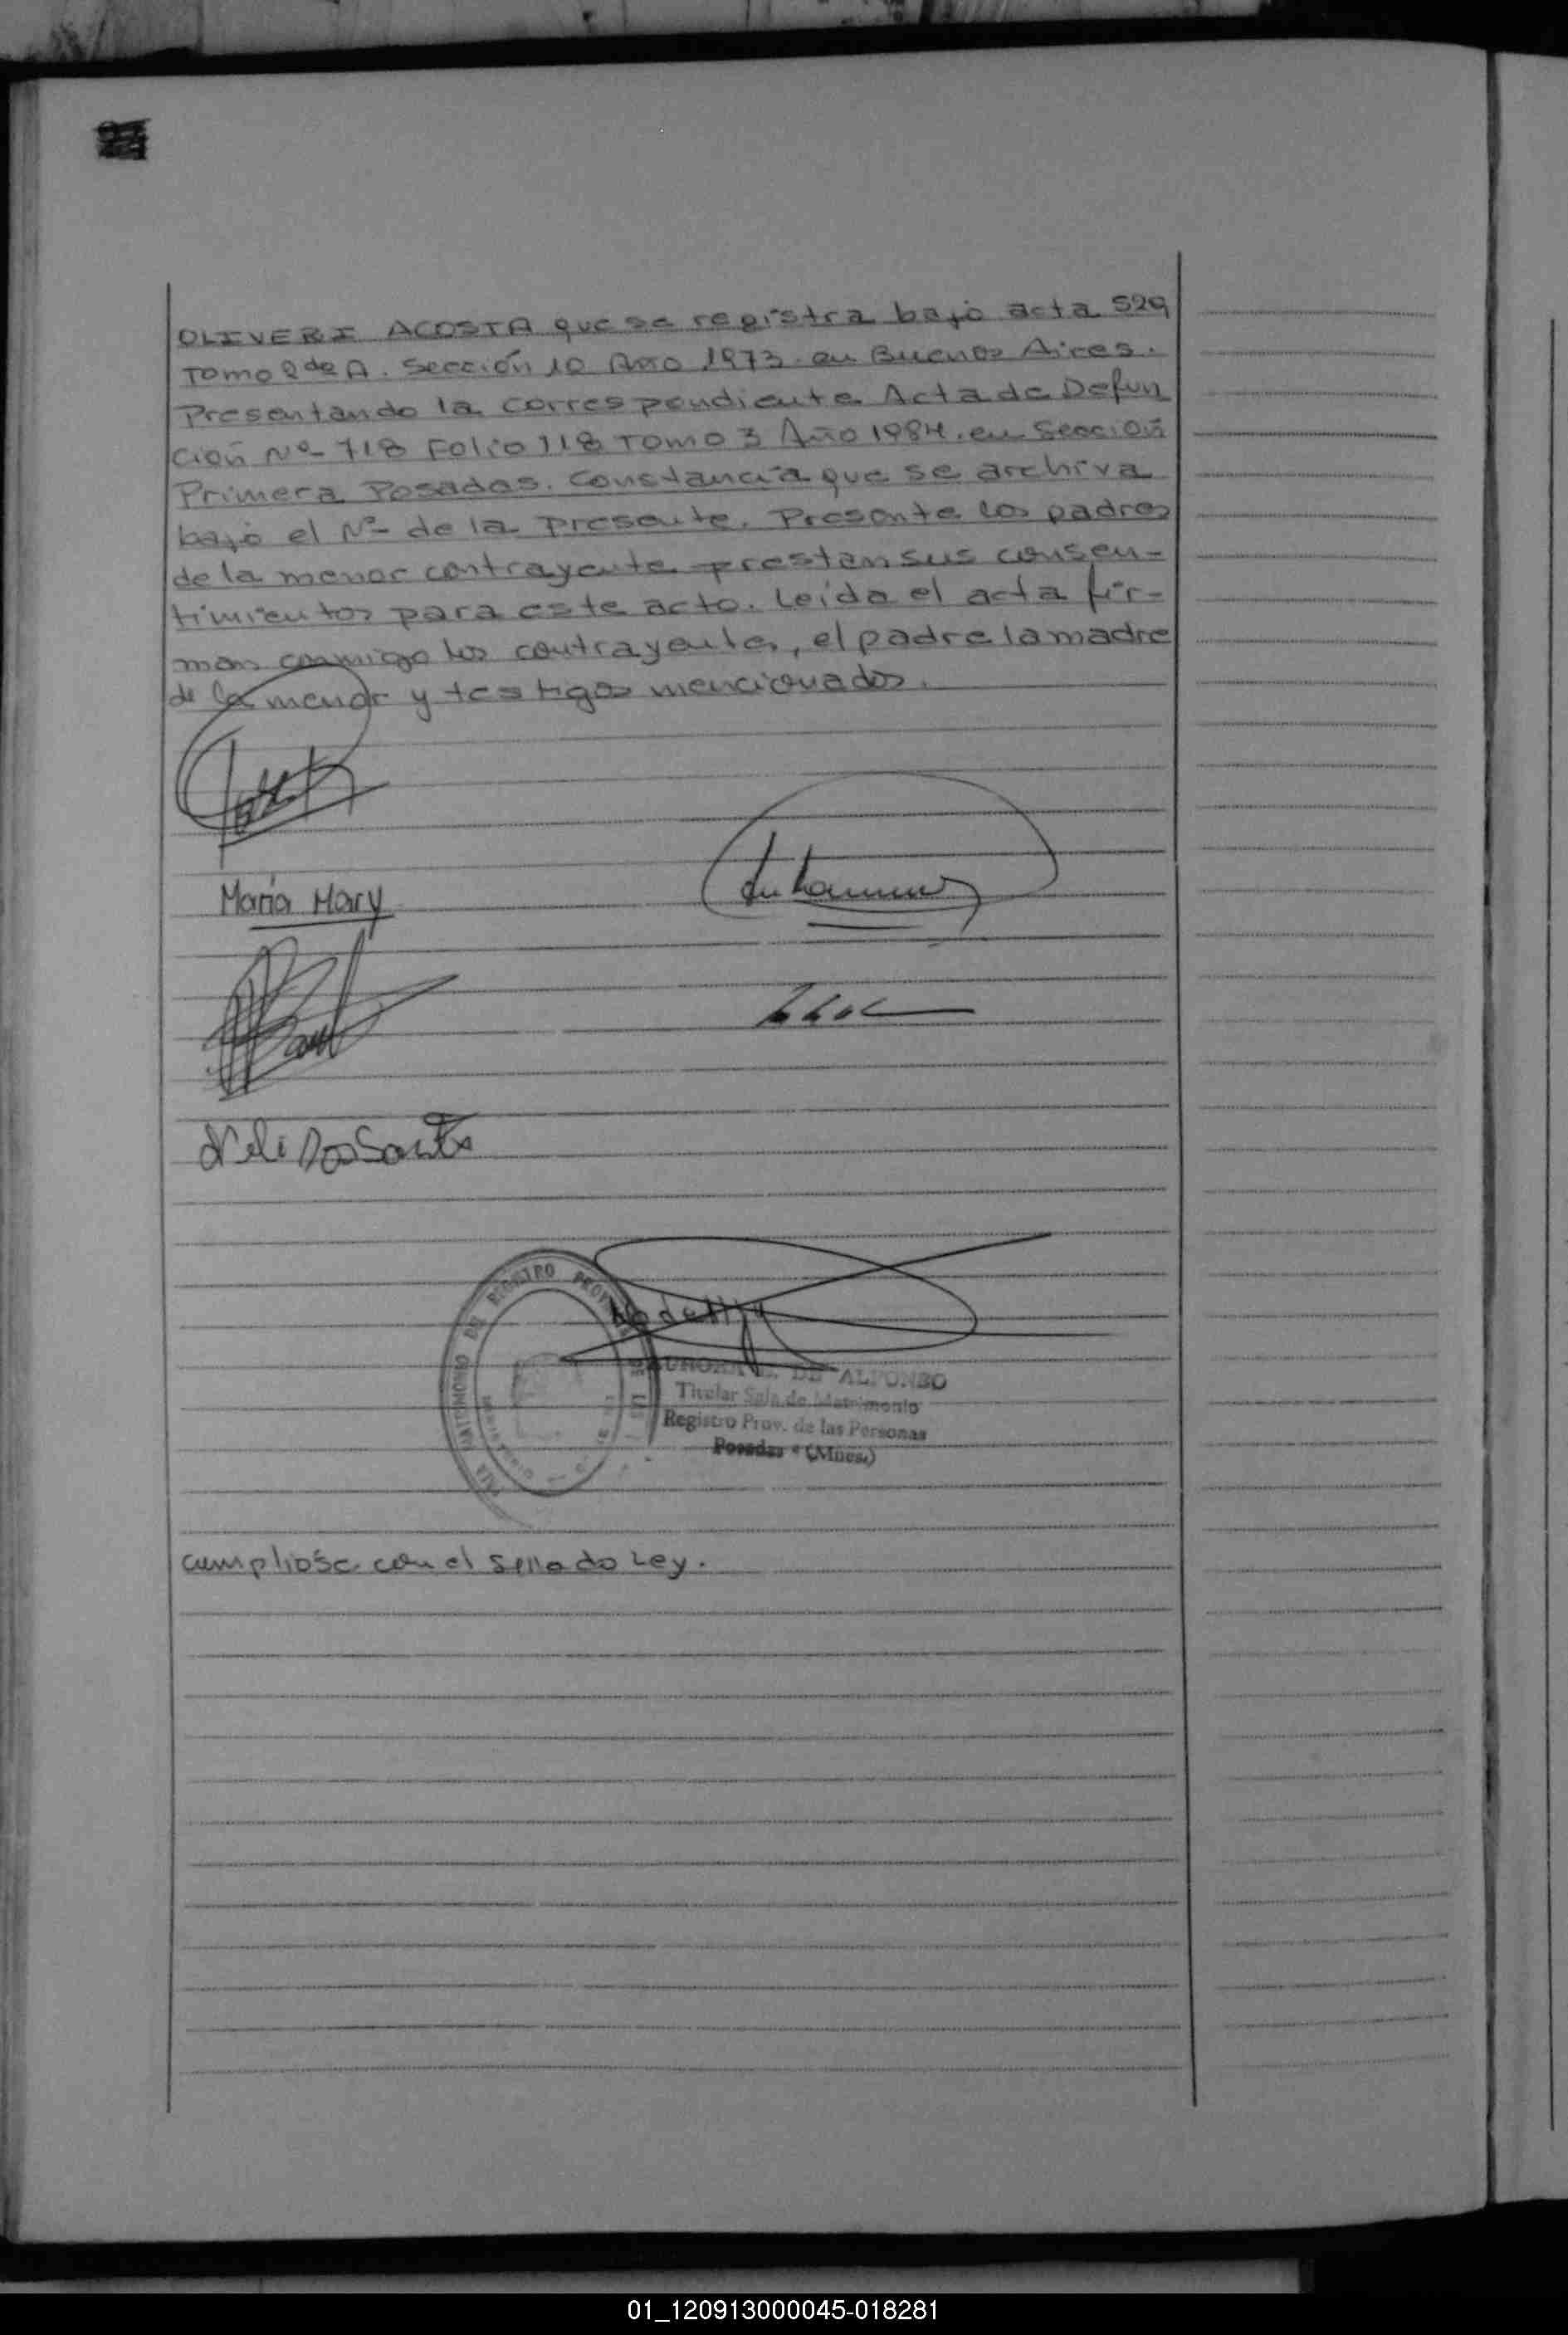 OLIVERI ACOSTA que se registra bajo acta 529
Tomo 2 de A. Sección 10 Año 1973. en Buenos Aires.
Presentando la correspondiente Acta de Defun
ción Nº 718 Folio 118 Tomo 3 Año 1984. en Sección
Primera Posadas. Constancia que se archiva
bajo el Nº de la presente. Presente los padres
de la menor contrayente prestan sus consen-
timientos para este acto. Leída el acta fir-
man conmigo los contrayentes, el padre la madre
de la menor y testigos mencionados.
María Mary
Neli Dos Santos
SALA MATRIMONIO DEL REGISTRO
DE ALFONSO
Titular Sala de Matrimonio
Registro Prov. de las Personas
Posadas - (Mnes.)
cumplióse con el sellado Ley.
01_120913000045-018281